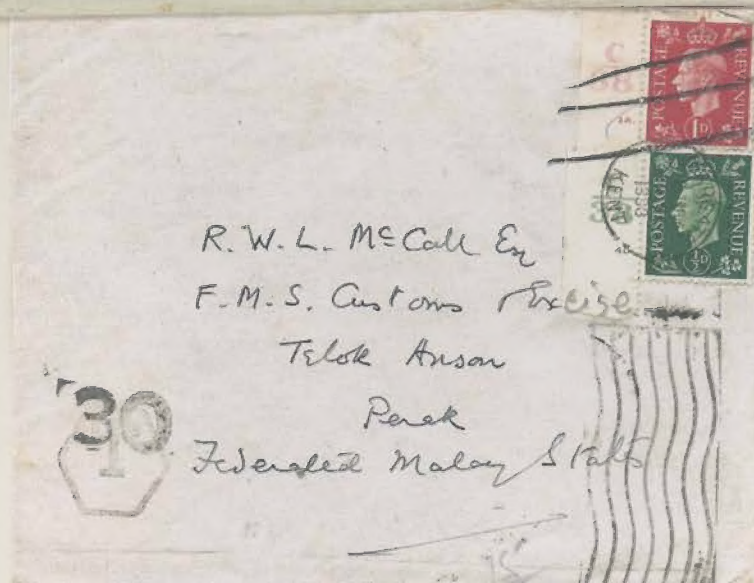 C
38
POSTAGE REVENUE
1D
KENT
1938
POSTAGE REVENUE
½D
R.W.L. McCall Esq
F.M.S. Customs & Excise
Telok Anson
Perak
Federated Malay States
30
T